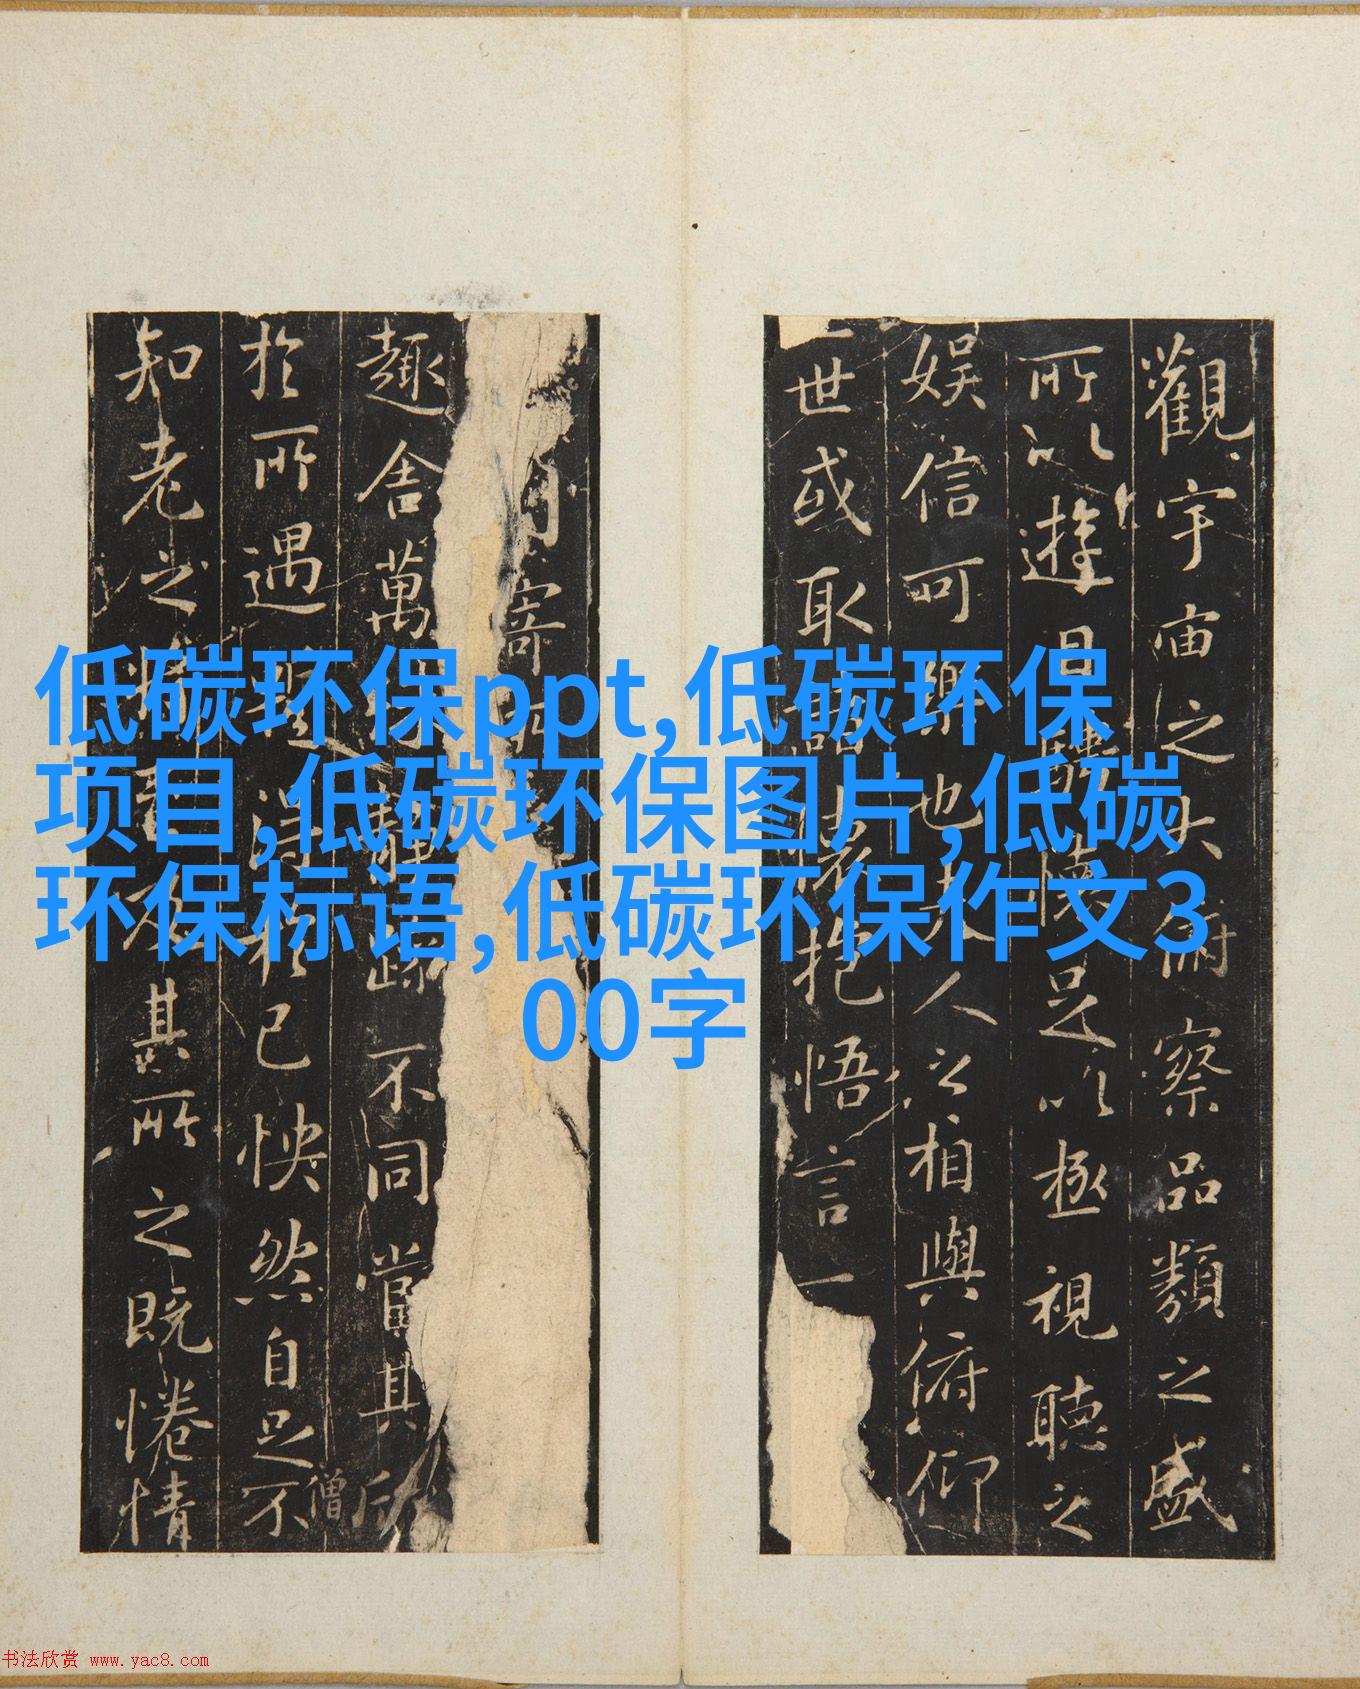 觀宇宙之大俯察品類之盛
所以遊目騁懷足以極視聽之
娛信可樂也夫人之相與俯仰
一世或取諸懷抱悟言一
內寄所
趣舍萬殊靜躁不同當其欣
僧
於所遇蹔得於己怏然自足不
知老之將至及其所之既惓情
低碳环保ppt,低碳环保
项目,低碳环保图片,低碳
环保标语,低碳环保作文3
00字
书法欣赏 www.yac8.com